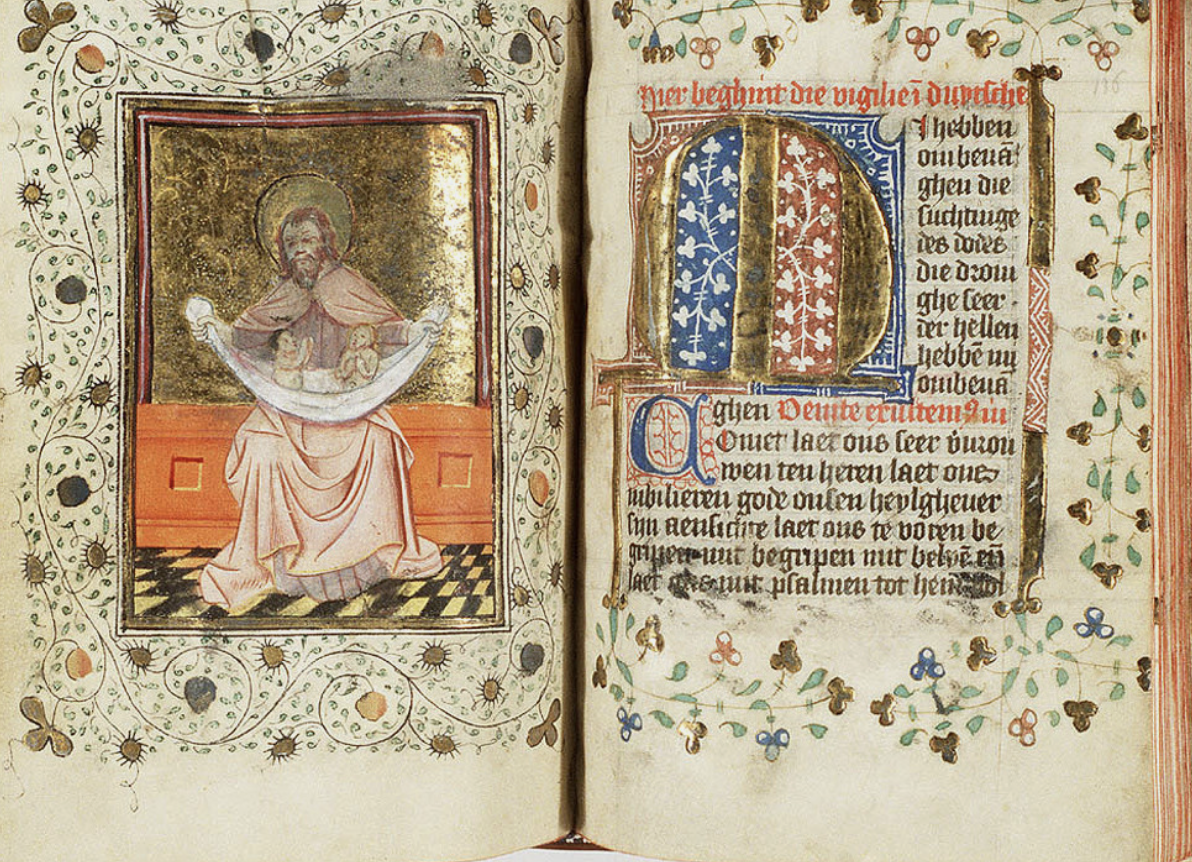 Hier beghint die vigilie ī duytsche
MI hebben
ombeuā
ghen die
suchtinge
des dodes
die droui
ghe seer
der hellen
hebbē my
ombeuā
ghen Venite exultemꝰ in
Comet laet ons seer vrou
wen ten heren laet ons
iubilieren gode onsen heylgheuer
syn aensichte laet ons te voren be
gripen mit begripen mit belyē eñ
laet ons mit psalmen tot hem